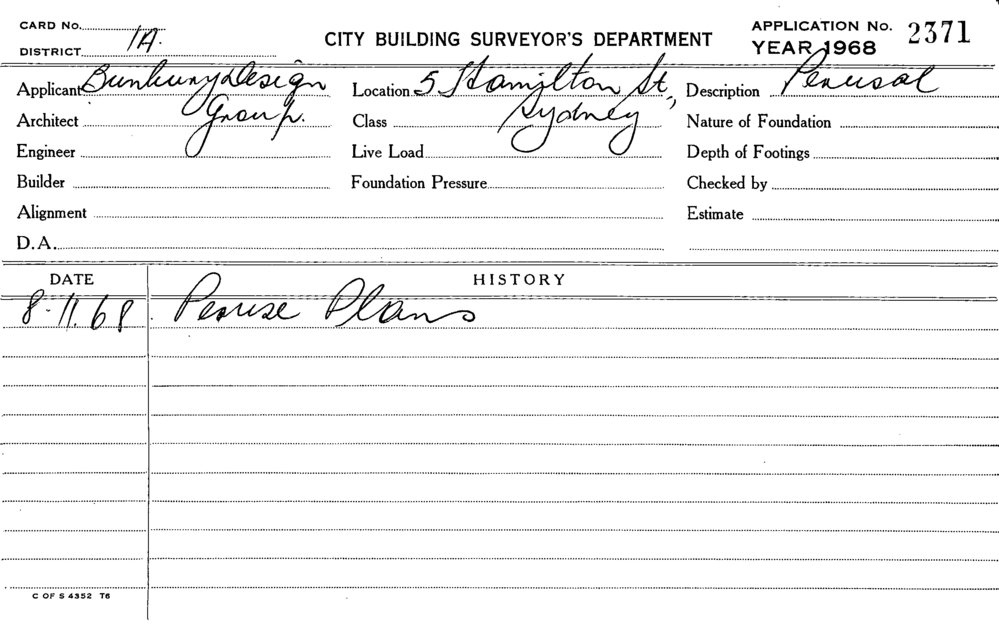 CARD No.
DISTRICT 1A.
CITY BUILDING SURVEYOR'S DEPARTMENT
APPLICATION No. 2371
YEAR 1968
Applicant Bunbury Design Location 5 Hamilton St, Description Perusal
Architect Group. Class Sydney Nature of Foundation
Engineer Live Load Depth of Footings
Builder Foundation Pressure Checked by
Alignment Estimate
D.A.
DATE HISTORY
8.11.68. Peruse Plans
C OF S 4352 T6